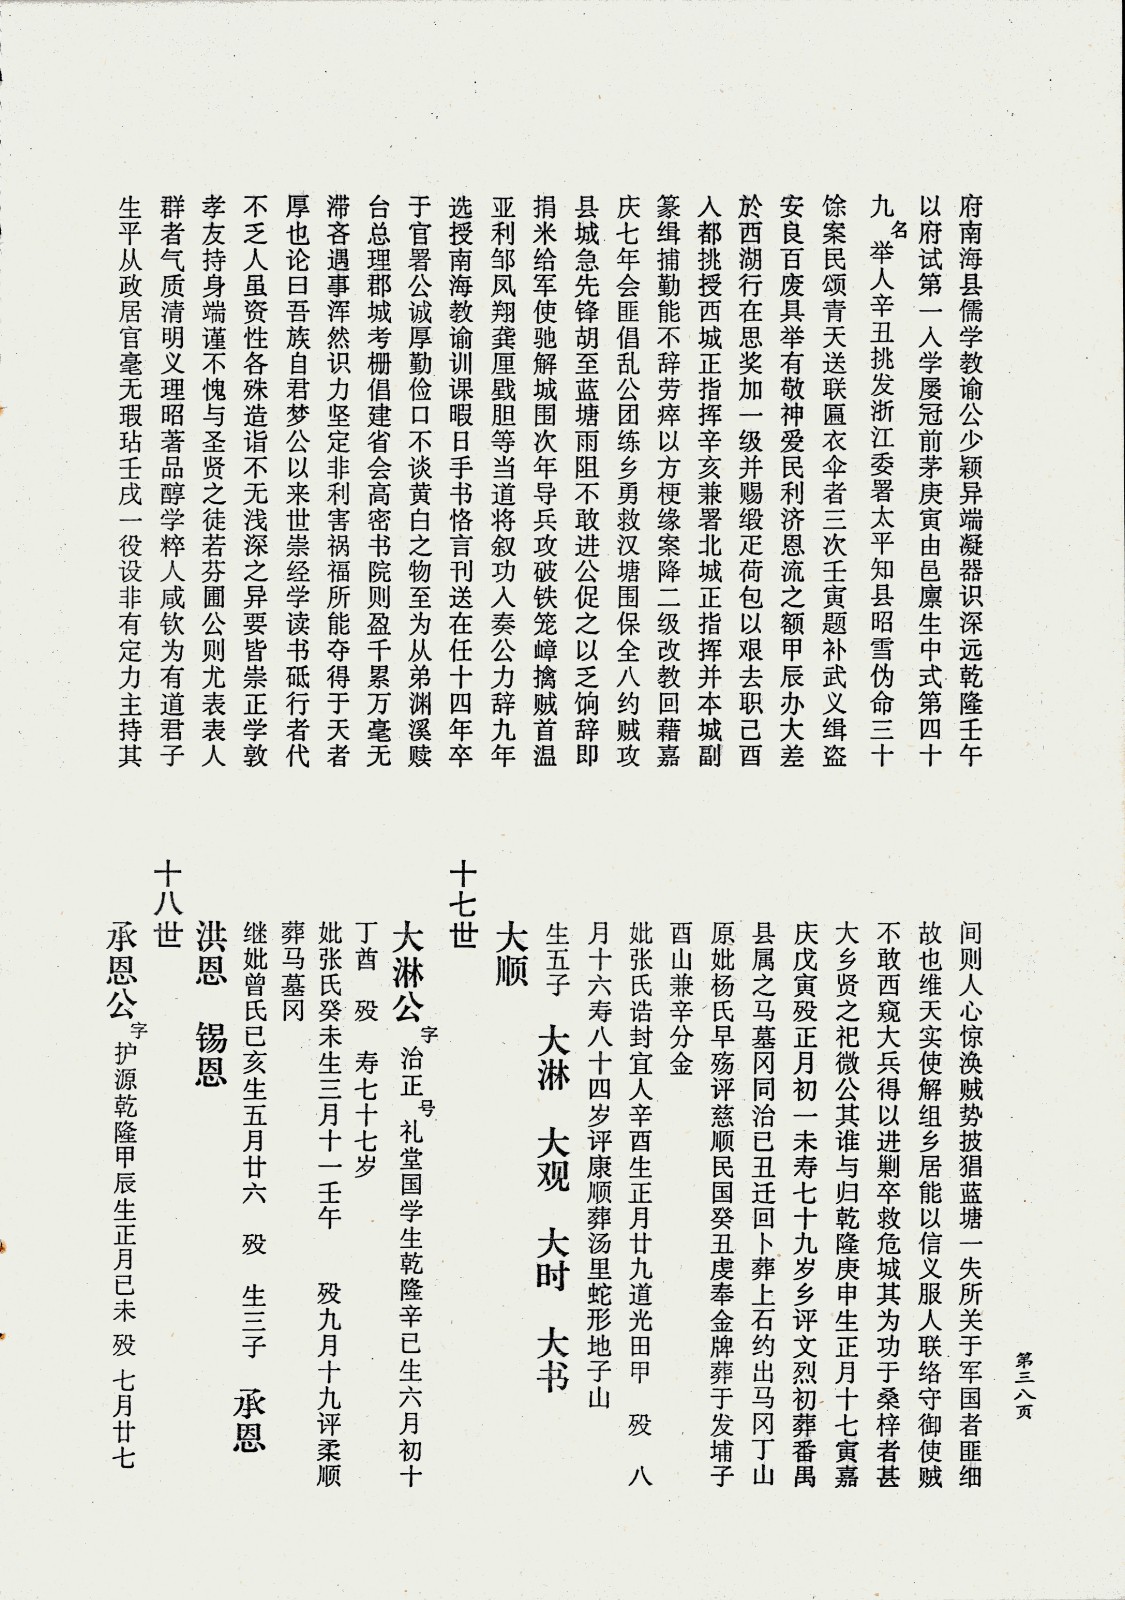 府南海县儒学教谕公少颖异端凝器识深远乾隆壬午
以府试第一入学屡冠前茅庚寅由邑廪生中式第四十
九名举人辛丑挑发浙江委署太平知县昭雪伪命三十
馀案民颂青天送联匾衣伞者三次壬寅题补武义缉盗
安良百废具举有敬神爱民利济恩流之额甲辰办大差
於西湖行在思奖加一级并赐缎疋荷包以艰去职己酉
入都挑授西城正指挥辛亥兼署北城正指挥并本城副
篆缉捕勤能不辞劳瘁以方梗缘案降二级改教回藉嘉
庆七年会匪倡乱公团练乡勇救汉塘围保全八约贼攻
县城急先锋胡至蓝塘雨阻不敢进公促之以乏饷辞即
捐米给军使驰解城围次年导兵攻破铁笼嶂擒贼首温
亚利邹凤翔龚厘戥胆等当道将叙功入奏公力辞九年
选授南海教谕训课暇日手书恪言刊送在任十四年卒
于官署公诚厚勤俭口不谈黄白之物至为从弟渊溪赎
台总理郡城考棚倡建省会高密书院则盈千累万毫无
滞吝遇事浑然识力坚定非利害祸福所能夺得于天者
厚也论曰吾族自君梦公以来世崇经学读书砥行者代
不乏人虽资性各殊造诣不无浅深之异要皆崇正学敦
孝友持身端谨不愧与圣贤之徒若芬圃公则尤表表人
群者气质清明义理昭著品醇学粹人咸钦为有道君子
生平从政居官毫无瑕玷壬戌一役设非有定力主持其
间则人心惊涣贼势披猖蓝塘一失所关于军国者匪细
故也维天实使解组乡居能以信义服人联络守御使贼
不敢西窥大兵得以进剿卒救危城其为功于桑梓者甚
大乡贤之祀微公其谁与归乾隆庚申生正月十七寅嘉
庆戊寅殁正月初一未寿七十九岁乡评文烈初葬番禺
县属之马墓冈同治已丑迁回卜葬上石约出马冈丁山
原妣杨氏早殇评慈顺民国癸丑虔奉金牌葬于发埔子
酉山兼辛分金
妣张氏诰封宜人辛酉生正月廿九道光田甲 殁 八
月十六寿八十四岁评康顺葬汤里蛇形地子山
生五子 大淋 大观 大时 大书
大顺
十七世
大淋公字治正号礼堂国学生乾隆辛已生六月初十
丁酋 殁 寿七十七岁
妣张氏癸未生三月十一壬午 殁九月十九评柔顺
葬马墓冈
继妣曾氏已亥生五月廿六 殁 生三子 承恩
洪恩 锡恩
十八世
承恩公字护源乾隆甲辰生正月已未 殁 七月廿七
第三八页